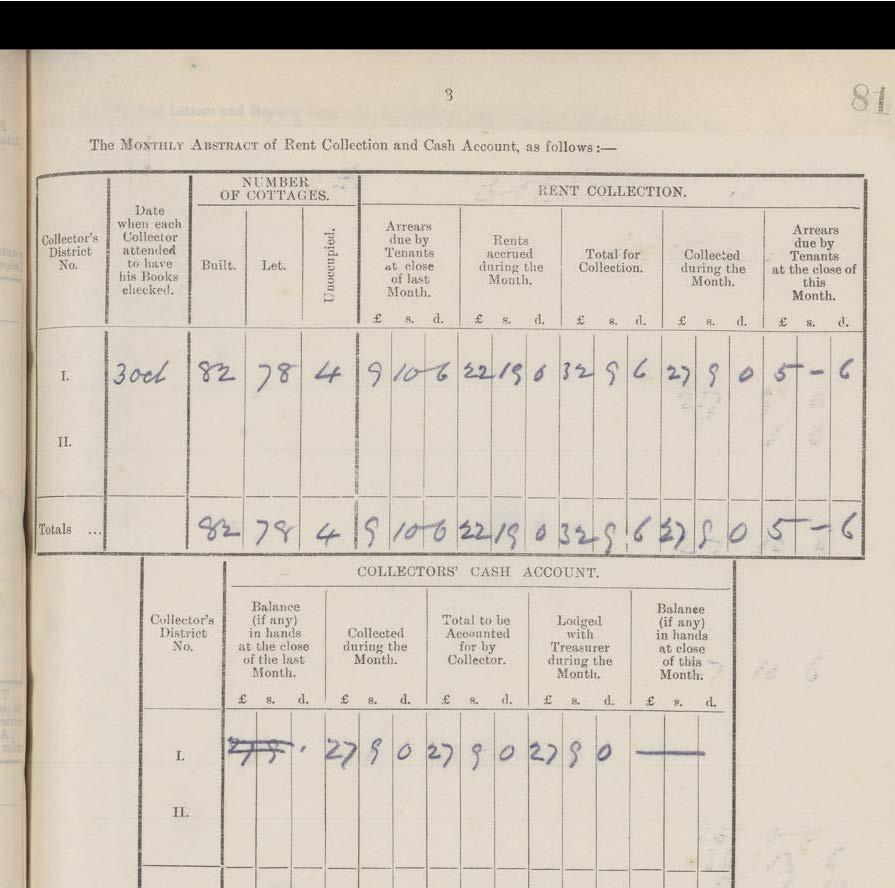 3
81
The MONTHLY ABSTRACT of Rent Collection and Cash Account, as follows:—
NUMBER OF COTTAGES.
RENT COLLECTION.
Collector's District No.
Date when each Collector attended to have his Books checked.
Built.
Let.
Unoccupied.
Arrears due by Tenants at close of last Month.
Rents accrued during the Month.
Total for Collection.
Collected during the Month.
Arrears due by Tenants at the close of this Month.
£ s. d. £ s. d. £ s. d. £ s. d. £ s. d.
I. 3 oct 82 78 4 9 10 6 22 19 0 32 9 6 27 9 0 5 - 6
II.
Totals ... 82 78 4 9 10 6 22 19 0 32 9 6 27 9 0 5 - 6
COLLECTORS' CASH ACCOUNT.
Collector's District No.
Balance (if any) in hands at the close of the last Month.
Collected during the Month.
Total to be Accounted for by Collector.
Lodged with Treasurer during the Month.
Balance (if any) in hands at close of this Month.
£ s. d. £ s. d. £ s. d. £ s. d. £ s. d.
I. 27 9 0 27 9 0 27 9 0 —
II.